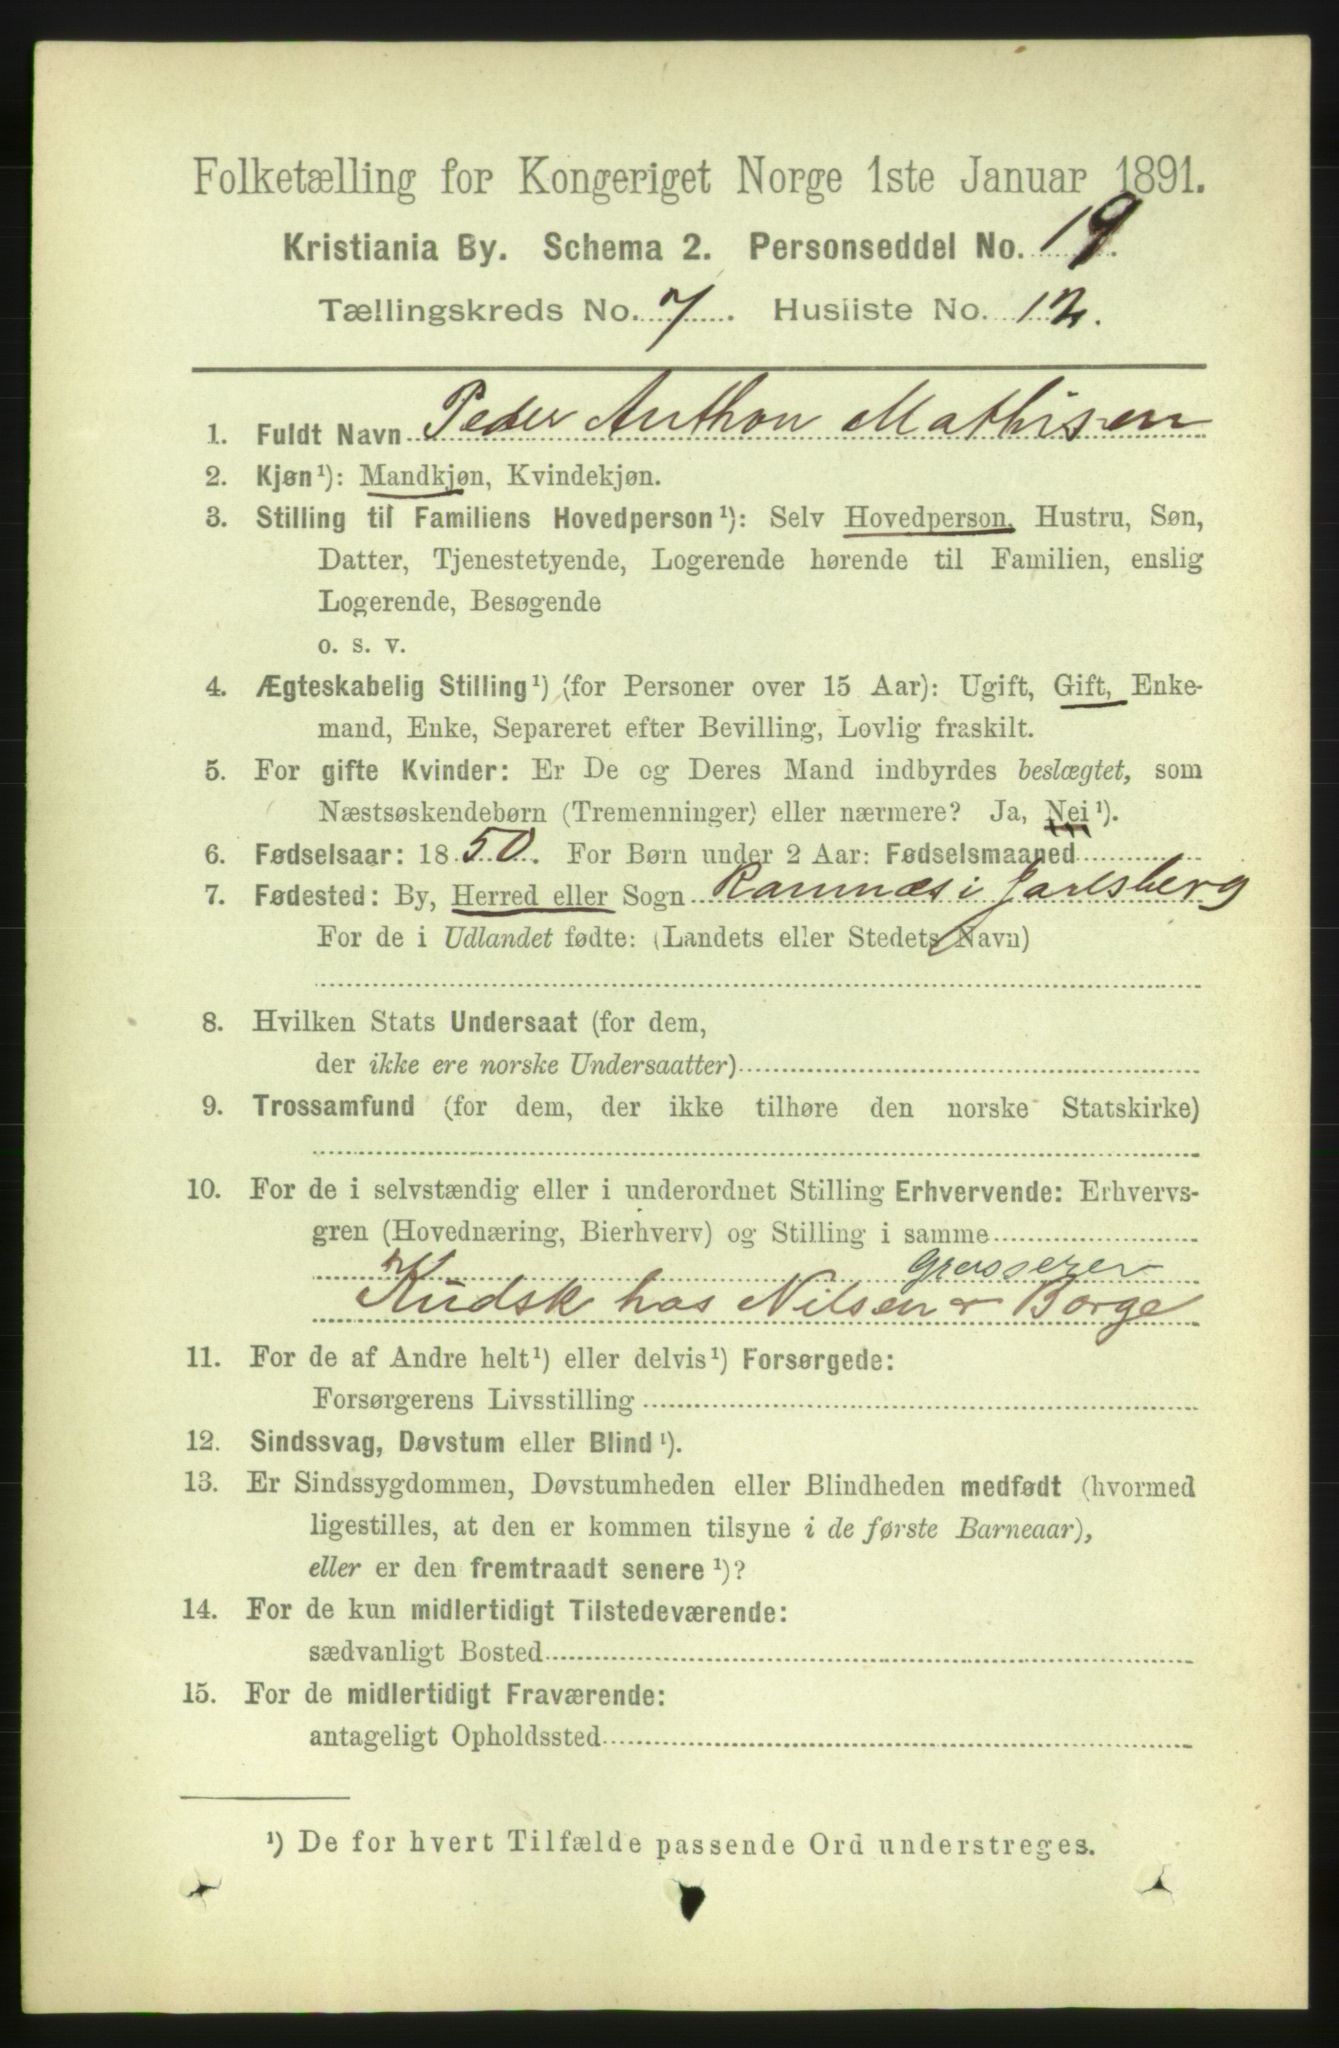 Folketælling for Kongeriget Norge 1ste Januar 1891.
Kristiania By. Schema 2. Personseddel No. 19.
Tællingskreds No. 7. Husliste No. 12.
1. Fuldt Navn Peder Anthon Mathisen
2. Kjøn¹): Mandkjøn, Kvindekjøn.
3. Stilling til Familiens Hovedperson¹): Selv Hovedperson, Hustru, Søn,
Datter, Tjenestetyende, Logerende hørende til Familien, enslig
Logerende, Besøgende
o. s. v.
4. Ægteskabelig Stilling¹) (for Personer over 15 Aar): Ugift, Gift, Enke-
mand, Enke, Separeret efter Bevilling, Lovlig fraskilt.
5. For gifte Kvinder: Er De og Deres Mand indbyrdes beslægtet, som
Næstsøskendebørn (Tremenninger) eller nærmere? Ja, Nei¹).
6. Fødselsaar: 1850. For Børn under 2 Aar: Fødselsmaaned
7. Fødested: By, Herred eller Sogn Ramnæs i Jarlsberg
For de i Udlandet fødte: (Landets eller Stedets Navn)
8. Hvilken Stats Undersaat (for dem,
der ikke ere norske Undersaatter)
9. Trossamfund (for dem, der ikke tilhøre den norske Statskirke)
10. For de i selvstændig eller i underordnet Stilling Erhvervende: Erhvervs-
gren (Hovednæring, Bierhverv) og Stilling i samme
Grosserer
Kudsk hos Nilsen & Borge
11. For de af Andre helt¹) eller delvis¹) Forsørgede:
Forsørgerens Livsstilling
12. Sindssvag, Døvstum eller Blind¹).
13. Er Sindssygdommen, Døvstumheden eller Blindheden medfødt (hvormed
ligestilles, at den er kommen tilsyne i de første Barneaar),
eller er den fremtraadt senere¹)?
14. For de kun midlertidigt Tilstedeværende:
sædvanligt Bosted
15. For de midlertidigt Fraværende:
antageligt Opholdssted
¹) De for hvert Tilfælde passende Ord understreges.